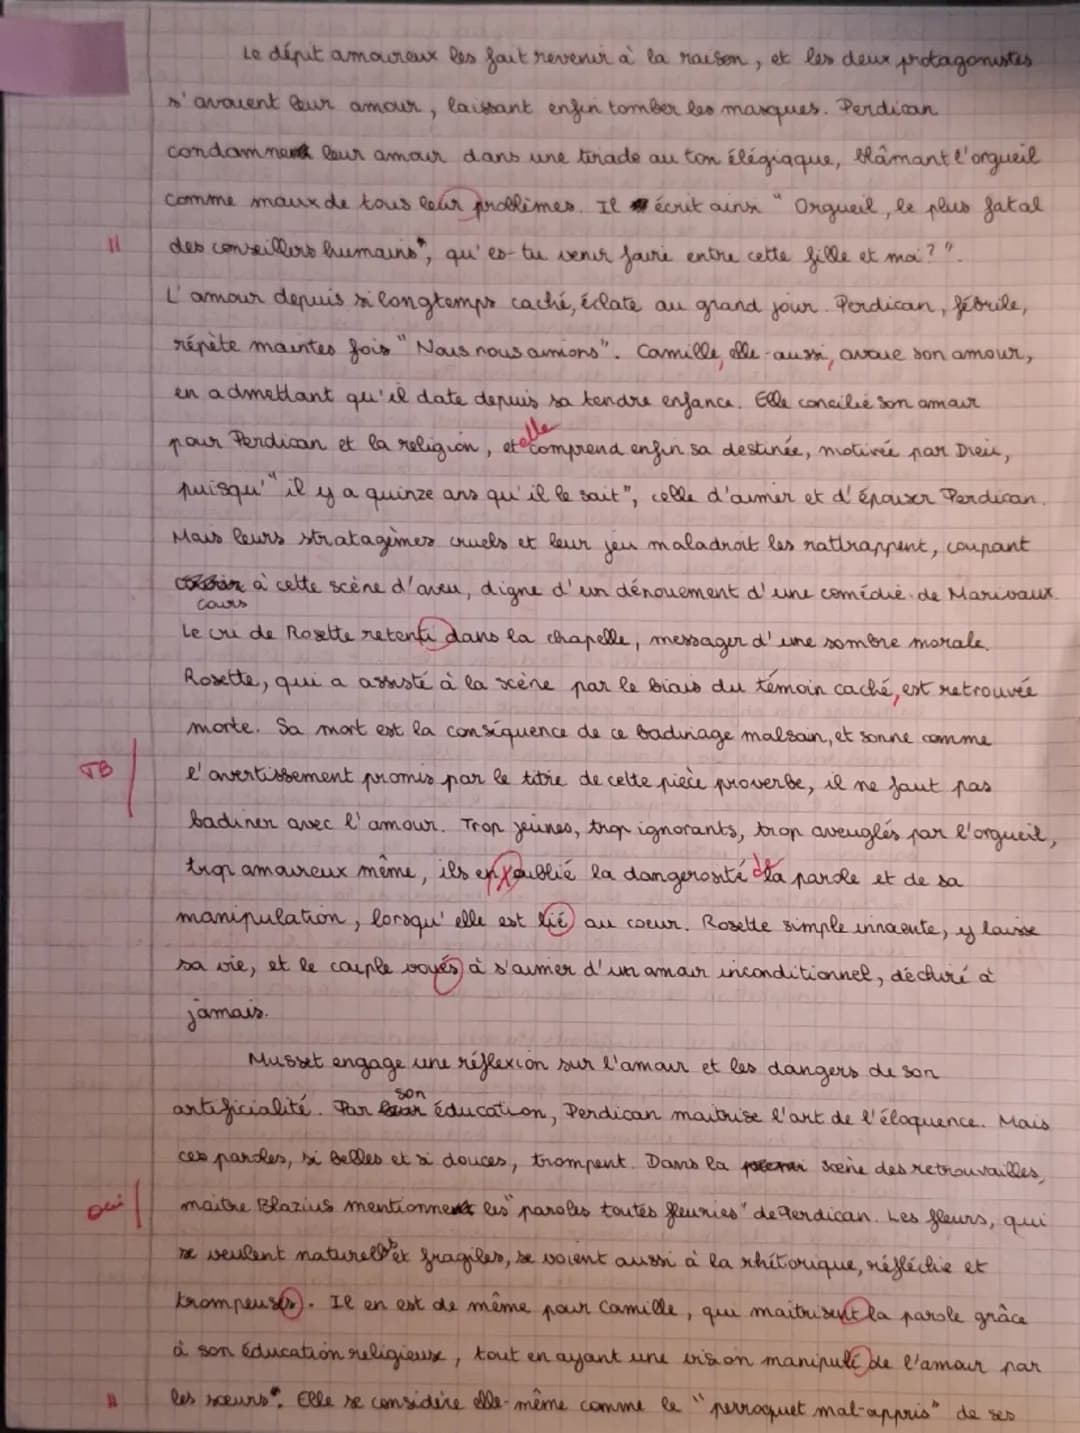 Le dépit amoureux les fait revenir à la raison, et les deux protagonistes
s'avouent leur amour, laissant enfin tomber les masques. Perdican
condamne leur amour dans une tirade au ton élégiaque, blâmant l'orgueil
comme maux de tous leur problèmes. Il écrit ainsi "Orgueil, le plus fatal
11 des conseillers humains*, qu'es-tu venir faire entre cette fille et moi?".
L'amour depuis si longtemps caché, éclate au grand jour. Perdican, fébrile,
répète maintes fois "Nous nous aimions". Camille, elle-aussi, avoue son amour,
en admettant qu'il date depuis sa tendre enfance. Elle concilie son amour
pour Perdican et la religion, et elle comprend enfin sa destinée, motivée par Dieu,
puisqu'"il y a quinze ans qu'il le sait", celle d'aimer et d'épouser Perdican.
Mais leurs stratagèmes cruels et leur jeu maladroit les rattrappent, coupant
cours à cette scène d'aveu, digne d'un dénouement d'une comédie de Marivaux.
Le cri de Rosette retenti dans la chapelle, messager d'une sombre morale.
Rosette, qui a assisté à la scène par le biais du témoin caché, est retrouvée
morte. Sa mort est la conséquence de ce badinage malsain, et sonne comme
TB l'avertissement promis par le titre de cette pièce proverbe, il ne faut pas
badiner avec l'amour. Trop jeunes, trop ignorants, trop aveuglés par l'orgueil,
trop amoureux même, ils en oublié la dangerosité de la parole et de sa
manipulation, lorsqu'elle est lié au coeur. Rosette simple innocente, y laisse
sa vie, et le couple voués à s'aimer d'un amour inconditionnel, déchiré à
jamais.
Musset engage une réflexion sur l'amour et les dangers de son
artificialité. Par son éducation, Perdican maitrise l'art de l'éloquence. Mais
ces paroles, si belles et si douces, trompent. Dans la scène des retrouvailles,
oui maître Blazius mentionne les "paroles toutes fleuries" de Perdican. Les fleurs, qui
se veulent naturelles et fragiles, se voient aussi à la rhétorique, réfléchie et
trompeuses. Il en est de même pour Camille, qui maitrisent la parole grâce
à son éducation religieuse, tout en ayant une vision manipulé de l'amour par
11 les soeurs*. Elle se considère elle-même comme le "perroquet mal-appris" de ses